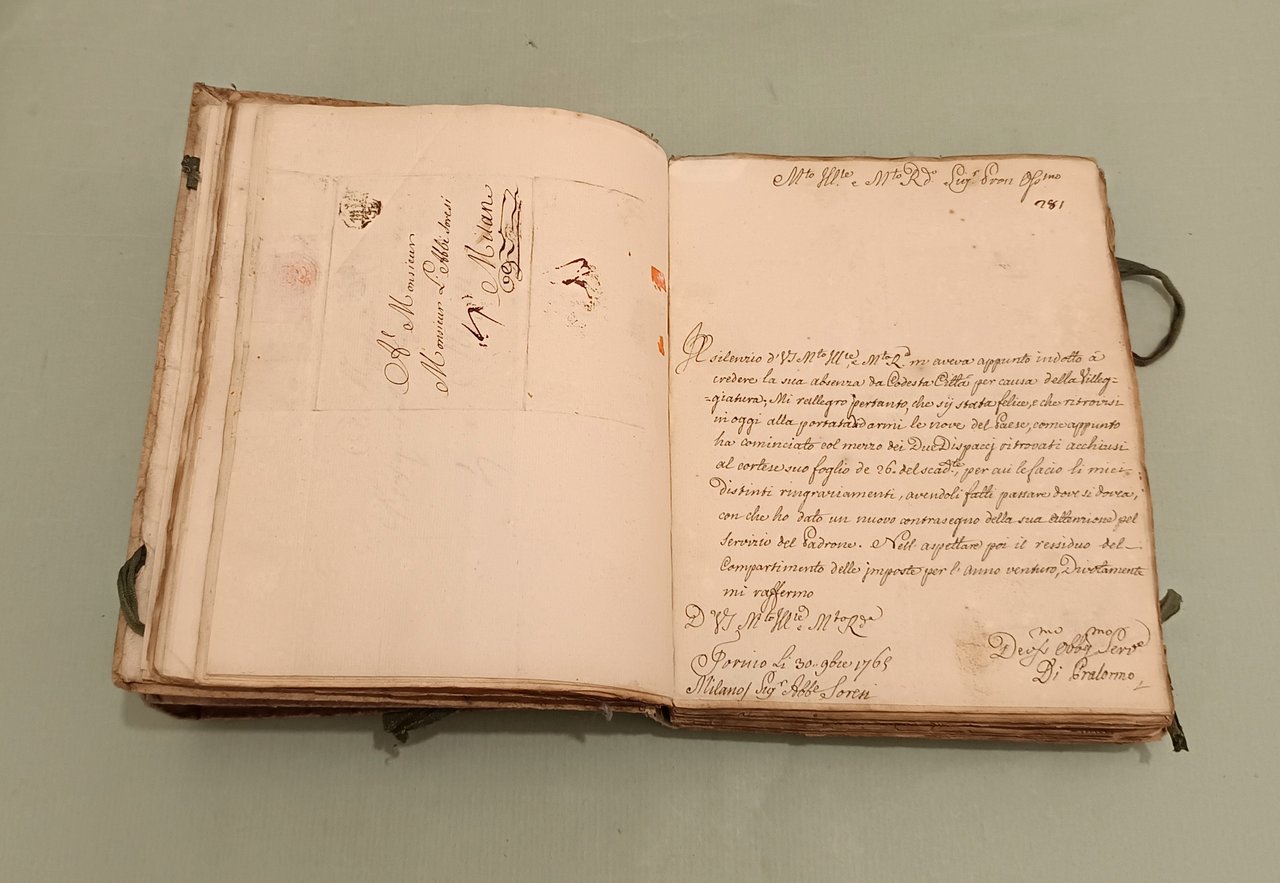 A Monsieur
Monsieur L'Abbé Soresi
Milan
Mto Illre e Mto Rdo Sigr Pron Ossmo
281
Il silenzio d'VS Mto Illre, e Mto Rda m'aveva appunto indotto à
credere la sua absenza da Codesta Città per causa della Villeg-
-giatura; Mi rallegro pertanto, che sij stata felice, e che ritrovisi
in oggi alla portata darmi le nove del Paese, come appunto
ha cominciato col mezzo dei Due Dispacj ritrovati acchiusi
al cortese suo foglio de 26. del scadte, per cui le facio li miei
distinti ringraziamenti, avendoli fatti passare dove si dovea,
con che ho dato un nuovo contrasegno della sua attenzione pel
servizio del Padrone. Nell' aspettare poi il ressiduo del
Compartimento delle imposte per l'anno venturo, Divotamente
mi raffermo
D VS Mto Illre e Mto Rda
Torino Li 30. 9bre 1765
Devmo Obbmo Serve
Di Pralormo
Milano / Sigr Abbe Soresi